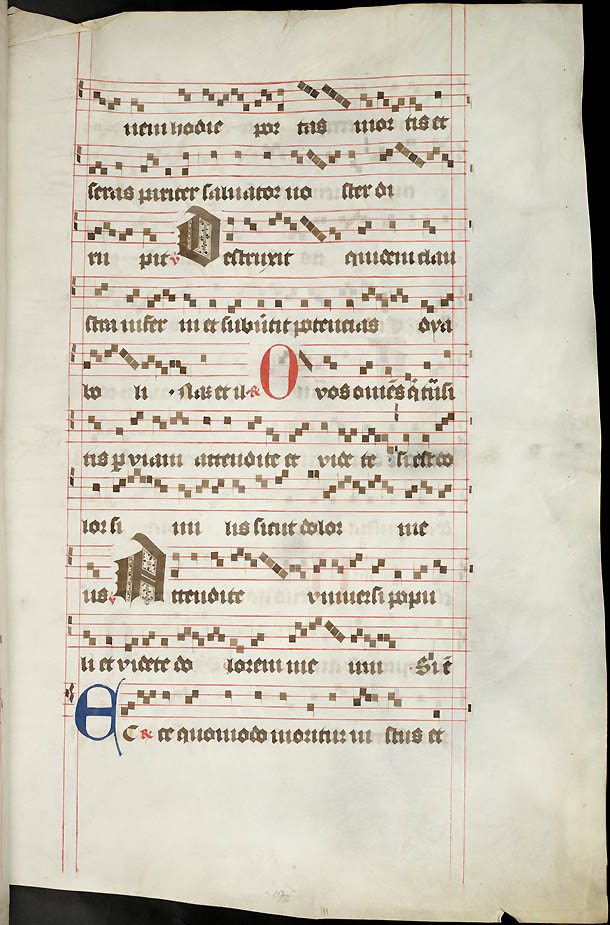 nem hodie por tas mor tis et
seras pariter saluator no ster di
ru pit ℣ Destruxit quidem clau
stra infer ni et subūtit potencias dya
bo li
O vos om̄es q̄ tn̄si
tis p viam attendite et vide te si est do
lor si mi lis sicut dolor me
us ℣ Attendite vniuersi popu
li et videte do lorem me um Si ē
ECce quomodo moritur iu stus et